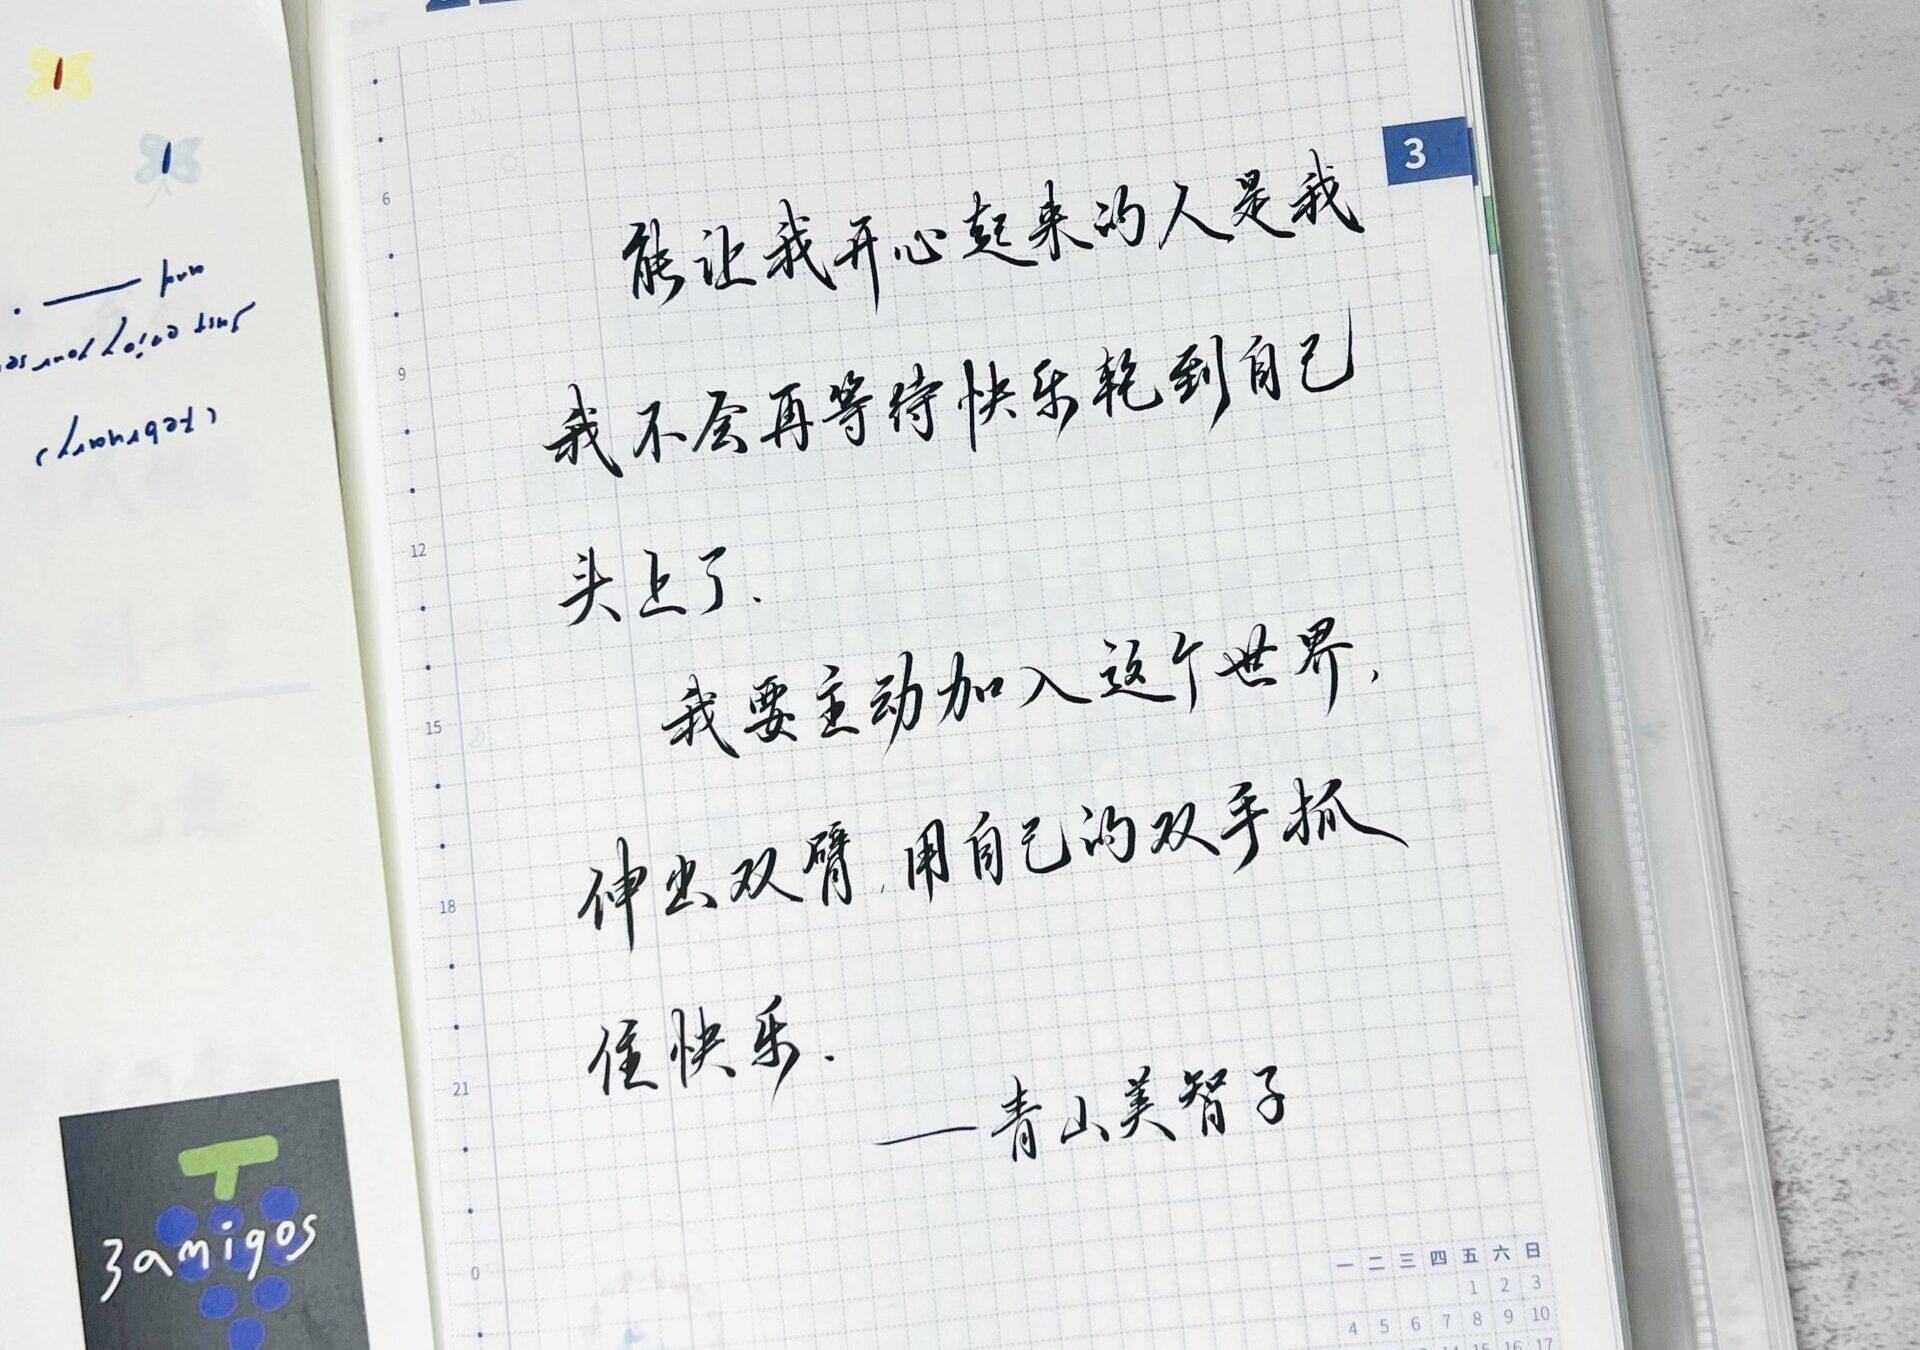 能让我开心起来的人是我
我不会再等待快乐轮到自己
头上了.
我要主动加入这个世界,
伸出双臂,用自己的双手抓
住快乐.
——青山美智子
3
6
9
12
15
18
21
0
一 二 三 四 五 六 日
1 2 3
4 5 6 7 8 9 10
14 15 16 17
(February)
just enjoy your se
and —— .
3amigos